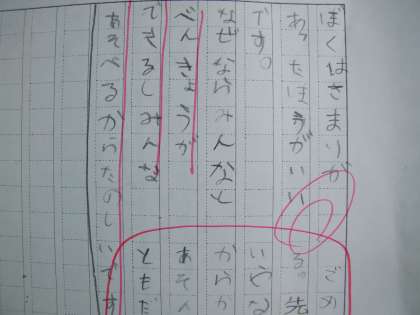 ぼくはさまりが ごめ
あったほうがいい る。先
です。 いやな
なぜならみんなと からか
べんきょうが あそん
できるしみんな ともだ
あそべるからたのしいです